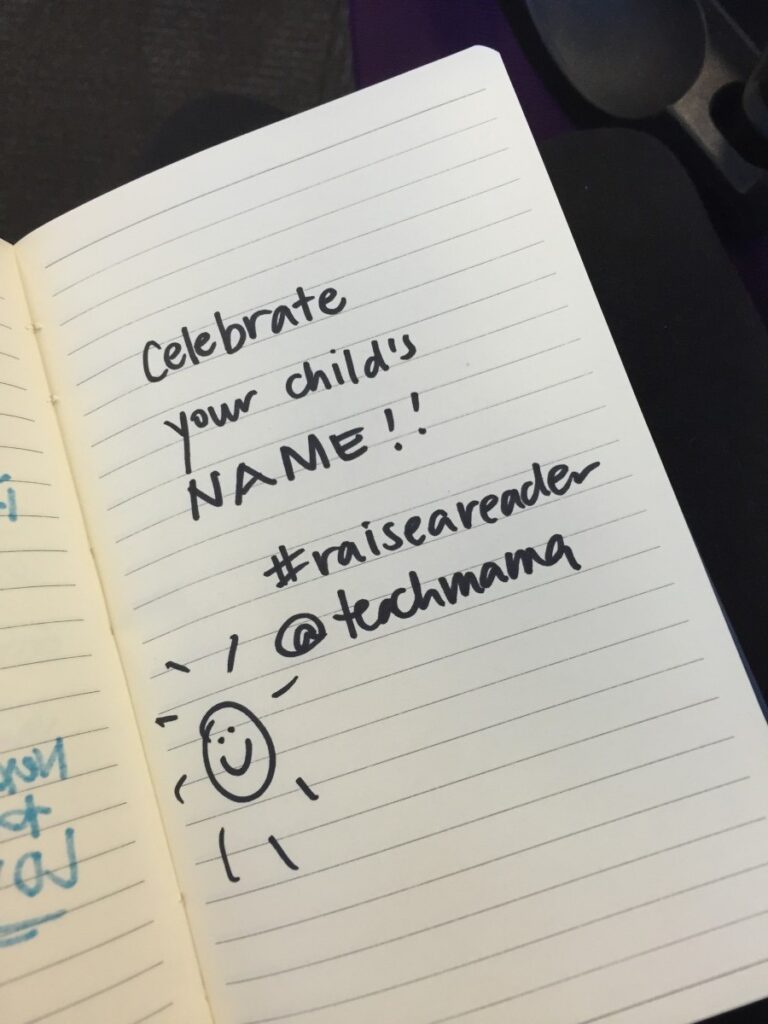 Celebrate
your child's
NAME!!
#raiseareader
@teachmama